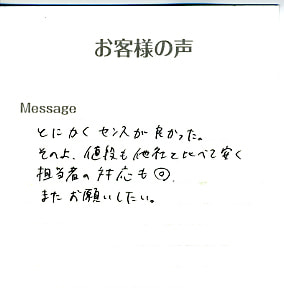 お客様の声
Message
とにかくセンスが良かった。
その上、値段も他社と比べて安く
担当者の対応も◎。
またお願いしたい。